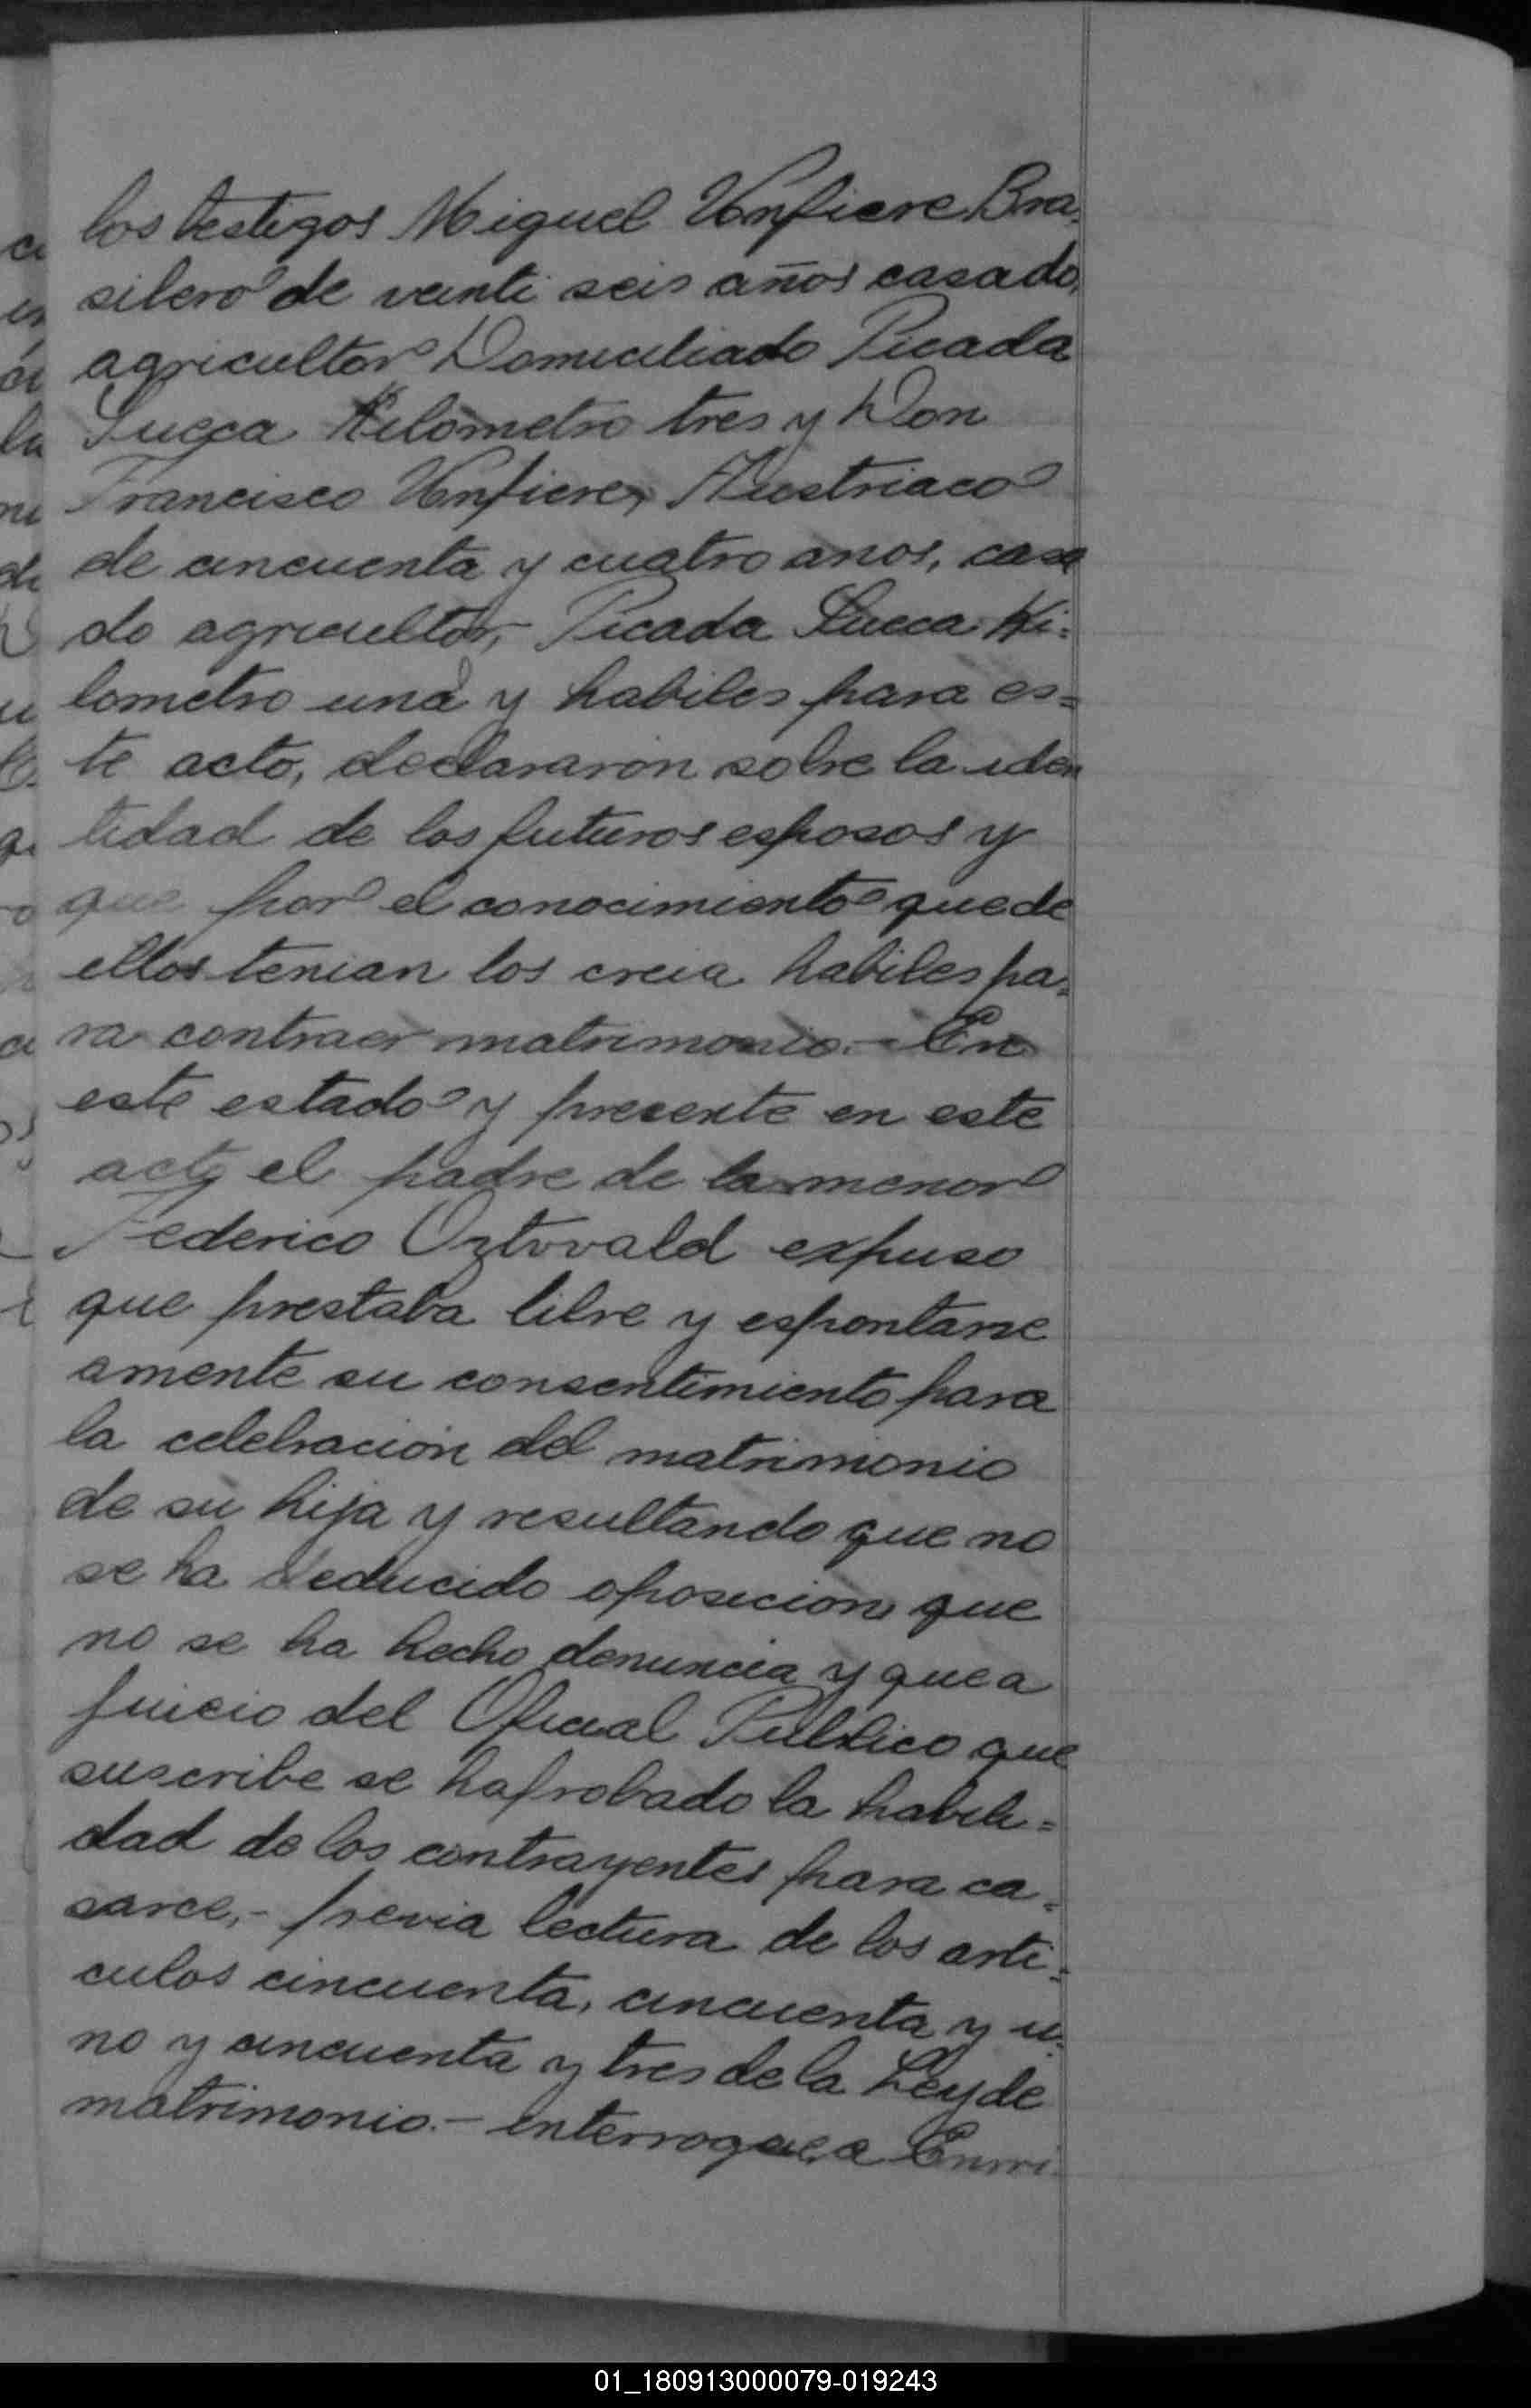 los testigos Miguel Vonfiere Bra-
silero de veinti seis años casado,
agricultor Domiciliado Picada
Sueca Kilometro tres y Don
Francisco Vonfiere, Austriaco
de cincuenta y cuatro anos, casa
do agricultor, Picada Sueca Ki=
lometro una y habiles para es=
te acto, declararon sobre la iden
tidad de los futuros esposos y
que por el conocimiento que de
ellos tenian los creia habiles pa=
ra contraer matrimonio.- En
este estado y presente en este
acto el padre de la menor
Federico Oztvvald expuso
que prestaba libre y espontane
amente su consentimiento para
la celebracion del matrimonio
de su hija y resultando que no
se ha deducido oposicion que
no se ha hecho denuncia y que a
juicio del Oficial Publico que
suscribe se ha probado la habili=
dad de los contrayentes para ca=
sarce,- previa lectura de los arti=
culos cincuenta, cincuenta y u=
no y cincuenta y tres de la Ley de
matrimonio.- interrogue a Enrri
01_180913000079-019243